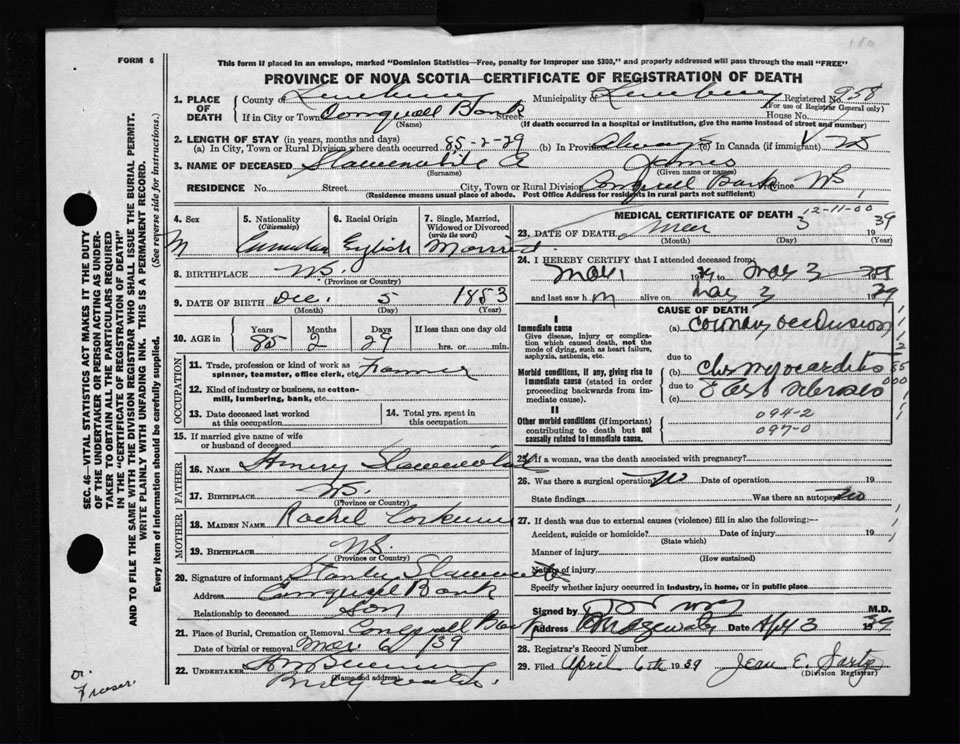 180
FORM 6
This form if placed in an envelope, marked "Dominion Statistics—Free, penalty for improper use $300," and properly addressed will pass through the mail "FREE"
PROVINCE OF NOVA SCOTIA—CERTIFICATE OF REGISTRATION OF DEATH
SEC. 46—VITAL STATISTICS ACT MAKES IT THE DUTY
OF THE UNDERTAKER OR PERSON ACTING AS UNDER-
TAKER TO OBTAIN ALL THE PARTICULARS REQUIRED
IN THE "CERTIFICATE OF REGISTRATION OF DEATH"
AND TO FILE THE SAME WITH THE DIVISION REGISTRAR WHO SHALL ISSUE THE BURIAL PERMIT.
WRITE PLAINLY WITH UNFADING INK. THIS IS A PERMANENT RECORD.
Every item of information should be carefully supplied. (See reverse side for instructions.)
1. PLACE OF DEATH County of Lunenburg Municipality of Lunenburg Registered No. 958
(For use of Registrar General only)
If in City or Town Conquerall Bank Street House No.
(Name) (If death occurred in a hospital or institution, give the name instead of street and number)
2. LENGTH OF STAY (in years, months and days)
(a) In City, Town or Rural Division where death occurred 85-2-29 (b) In Province Always (c) In Canada (if immigrant)
3. NAME OF DECEASED Slauenwhite James
(Surname) (Given name or names)
RESIDENCE No. Street City, Town or Rural Division Conquerall Bank Province NS
(Residence means usual place of abode. Post Office Address for residents in rural parts not sufficient)
4. Sex M
5. Nationality (Citizenship) Canadian
6. Racial Origin English
7. Single, Married, Widowed or Divorced (write the word) Married
8. BIRTHPLACE NS.
(Province or Country)
9. DATE OF BIRTH Dec. 5 1853
(Month) (Day) (Year)
10. AGE in Years 85 Months 2 Days 29 If less than one day old hrs. or min.
OCCUPATION
11. Trade, profession or kind of work as spinner, teamster, office clerk, etc. Farmer
12. Kind of industry or business, as cotton-mill, lumbering, bank, etc.
13. Date deceased last worked at this occupation
14. Total yrs. spent in this occupation
15. If married give name of wife or husband of deceased
FATHER
16. NAME Henry Slauenwhite
17. BIRTHPLACE NS.
(Province or Country)
MOTHER
18. MAIDEN NAME Rachel Corkum
19. BIRTHPLACE NS.
(Province or Country)
20. Signature of informant Stanley Slauenwhite
Address Conquerall Bank
Relationship to deceased Son
21. Place of Burial, Cremation or Removal Conquerall Bank
Date of burial or removal Mar. 6 /39
22. UNDERTAKER
(Name and address)
Bridgewater.
Dr. Fraser.
MEDICAL CERTIFICATE OF DEATH 12-11-00
23. DATE OF DEATH Mar 3 1939
(Month) (Day) (Year)
24. I HEREBY CERTIFY that I attended deceased from
Mar 1 1939 to Mar 3 1939
and last saw h m alive on Mar 3 1939
CAUSE OF DEATH
I
Immediate cause
Give disease, injury or complication which caused death, not the mode of dying, such as heart failure, asphyxia, asthenia, etc.
(a) Coronary occlusion
due to
Morbid conditions, if any, giving rise to immediate cause (stated in order proceeding backwards from immediate cause).
(b) Chr myocarditis
due to
(c)
II
Other morbid conditions (if important) contributing to death but not causally related to immediate cause.
094-2
097-0
25. If a woman, was the death associated with pregnancy?
26. Was there a surgical operation No Date of operation 19
State findings Was there an autopsy No
27. If death was due to external causes (violence) fill in also the following:—
Accident, suicide or homicide? Date of injury 19
(State which)
Manner of injury
(How sustained)
Nature of injury
Specify whether injury occurred in industry, in home, or in public place
Signed by M.D.
Address Bridgewater Date Apl 3 1939
28. Registrar's Record Number
29. Filed April 6th 1939 Jean E. Sarty
(Division Registrar)